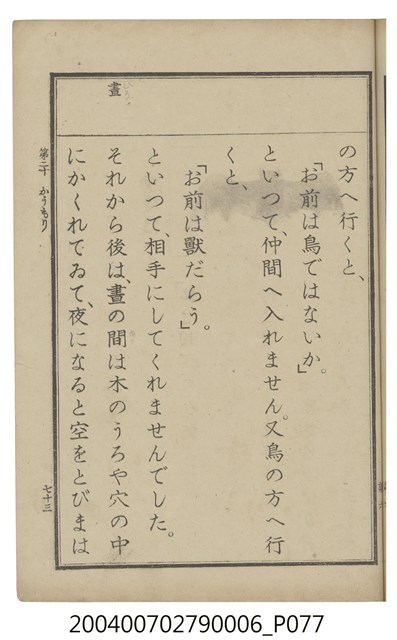 の方へ行くと、
「お前は鳥ではないか。」
といつて、仲間へ入れません。又鳥の方へ行
くと、
「お前は獸だらう。」
といつて、相手にしてくれませんでした。
それから後は、晝の間は木のうろや穴の中
にかくれてゐて、夜になると空をとびまは
晝
第二十 かうもり
七十三
200400702790006_P077